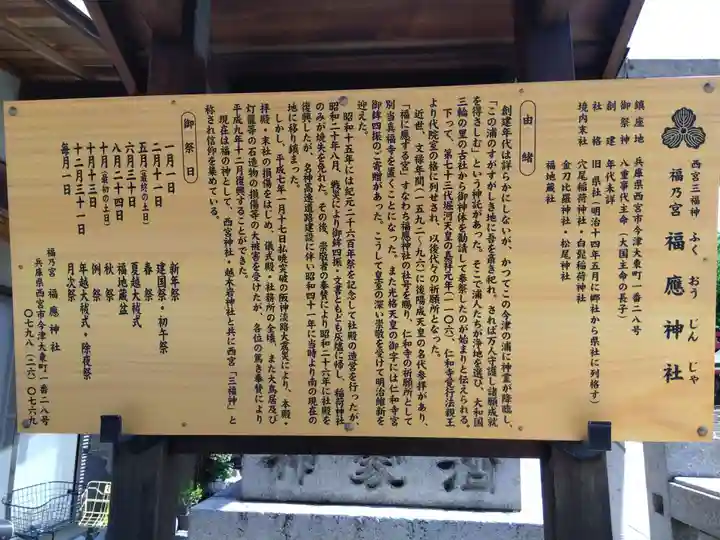 西宮三福神
福乃宮 福應神社
ふく おう じん じゃ
鎮座地 兵庫県西宮市今津大東町一番二八号
御祭神 八重事代主命(大国主命の長子)
創建 年代未詳
社格 旧県社(明治十四年五月に郷社から県社に列格す)
境内末社 穴尾稲荷神社・白髭稲荷神社
金刀比羅神社・松尾神社
福地蔵社
由緒
創建年代は詳らかにしないが、かつてこの今津の浦に神霊が降臨し、
「この浦のすがすがしき地に吾を斎き祀れ、されば万人守護し諸願成就
を得さしむ」という神託があった。そこで浦人たちが浄地を選び、大和国
三輪の里の古社から御神体を勧請して奉祭したのが始まりと伝えられる。
下って、第七十三代堀河天皇の嘉祥元年(一一〇六)、仁和寺覚行法親王
より代院室の格に列せされ、以後代々の祈願所となった。
近世、文禄年間(一五九二〜九六)に後陽成天皇の名代奉拝があり、
「福に應ずる宮」すなわち福應神社の社号を賜り、仁和寺の祈願所として
別当真福寺を置くことになった。また光格天皇の御宇には仁和寺宮
御鉾四振のご寄贈があった。こうして皇室の深い崇敬を受けて明治維新を
迎えた。
昭和十五年には紀元二千六百年祭を記念して社殿の造営を行ったが、
昭和二十年八月、戦災により御鉾四振・文書ともども灰燼に帰し、稲荷神社
のみが焼失を免れた。その後、崇敬者の奉賛により昭和二十六年に社殿を
復興したが、名神高速道路建設に伴い昭和四十一年に当時より南の現在の
地に移り鎮まった。
しかし、平成七年一月十七日払暁突破の阪神淡路大震災により、本殿・
拝殿・末社の損傷をはじめ、儀式殿・社務所の全壊、また大鳥居及び
灯籠等の石造物の損傷等の大被害を受けたが、各位の篤き奉賛により
平成九年十二月復興することができた。
現在は福の神として、西宮神社・越木岩神社と共に西宮「三福神」と
称され信仰を集めている。
御祭日
一月一日 新年祭
二月十一日 建国祭・初午祭
五月(最終の土日) 春祭
六月三十日 夏越大祓式
八月二十四日 福地蔵盆
十月(最初の土日) 秋祭
十月十三日 例祭
十二月三十一日 年越大祓式・除夜祭
毎月一日 月次祭
福乃宮 福應神社
兵庫県西宮市今津大東町一番二八号
〇七九八(二六)〇七六九
酒家中